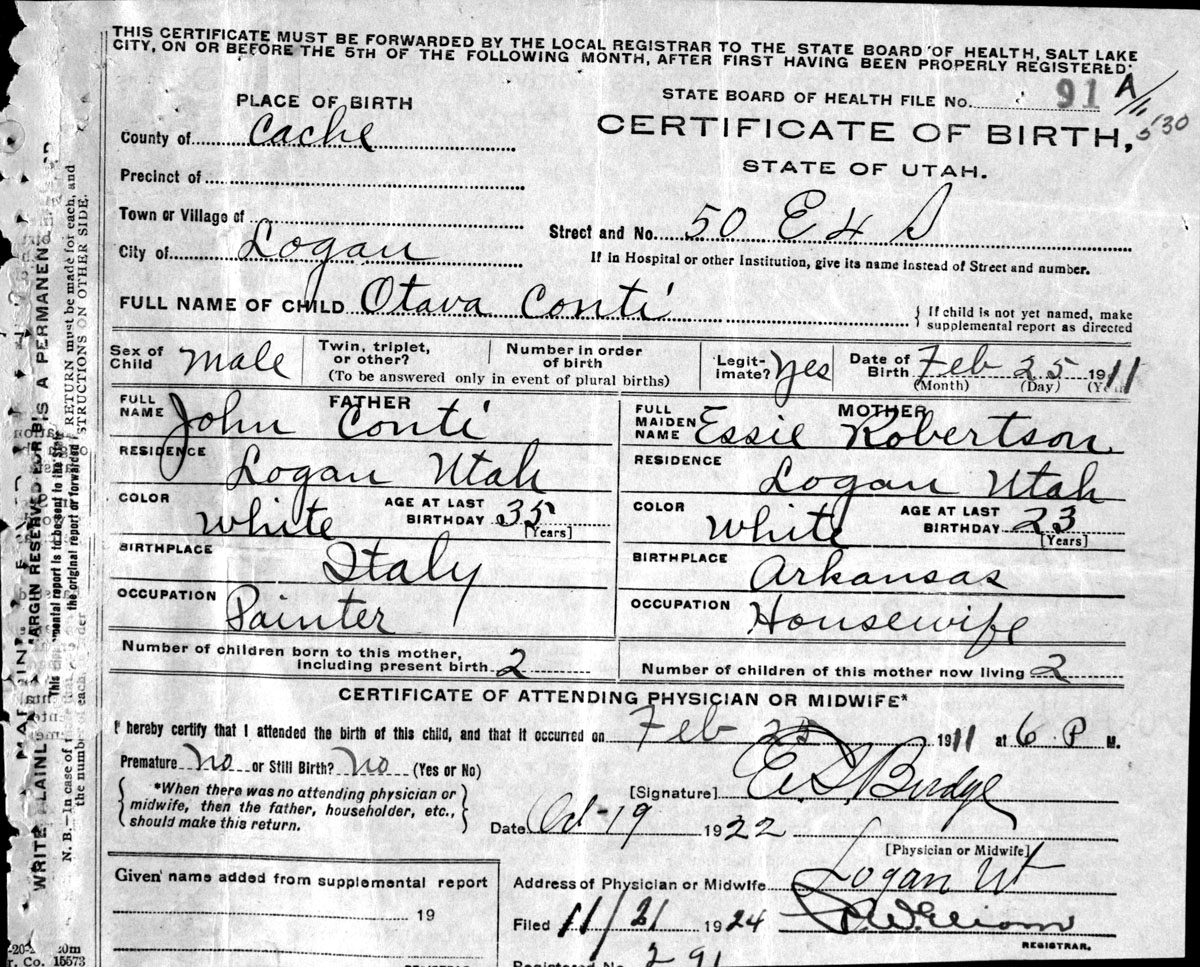 THIS CERTIFICATE MUST BE FORWARDED BY THE LOCAL REGISTRAR TO THE STATE BOARD OF HEALTH, SALT LAKE
CITY, ON OR BEFORE THE 5TH OF THE FOLLOWING MONTH, AFTER FIRST HAVING BEEN PROPERLY REGISTERED.
PLACE OF BIRTH
STATE BOARD OF HEALTH FILE No. 91 A
530
County of Cache
CERTIFICATE OF BIRTH,
STATE OF UTAH.
Precinct of
Town or Village of
Street and No. 50 E 4 S
City of Logan
If in Hospital or other Institution, give its name instead of Street and number.
FULL NAME OF CHILD Otava Conti
If child is not yet named, make
supplemental report as directed
Sex of Child Male
Twin, triplet, or other?
Number in order of birth
(To be answered only in event of plural births)
Legitimate? Yes
Date of Birth Feb 25 1911
(Month) (Day) (Year)
FATHER
FULL NAME John Conti
RESIDENCE Logan Utah
COLOR White AGE AT LAST BIRTHDAY 35 [Years]
BIRTHPLACE Italy
OCCUPATION Painter
MOTHER
FULL MAIDEN NAME Essie Robertson
RESIDENCE Logan Utah
COLOR White AGE AT LAST BIRTHDAY 23 [Years]
BIRTHPLACE Arkansas
OCCUPATION Housewife
Number of children born to this mother, including present birth 2
Number of children of this mother now living 2
CERTIFICATE OF ATTENDING PHYSICIAN OR MIDWIFE*
I hereby certify that I attended the birth of this child, and that it occurred on Feb 25 1911 at 6 P M.
Premature No or Still Birth? No (Yes or No)
*When there was no attending physician or
midwife, then the father, householder, etc.,
should make this return.
[Signature] E. S. Budge
Date Oct-19 1922
[Physician or Midwife]
Given name added from supplemental report
19
Address of Physician or Midwife Logan Ut
Filed 11/21 1924
REGISTRAR.
Registered No. 291
REGISTRAR
N. B.—In case of
RETURN must be made for each, and
the number of each
STRUCTIONS ON OTHER SIDE.
MARGIN RESERVED FOR BI
S A PERMANEN
mental report is to be sent to the
the original report or forwarded
r. Co. 15573